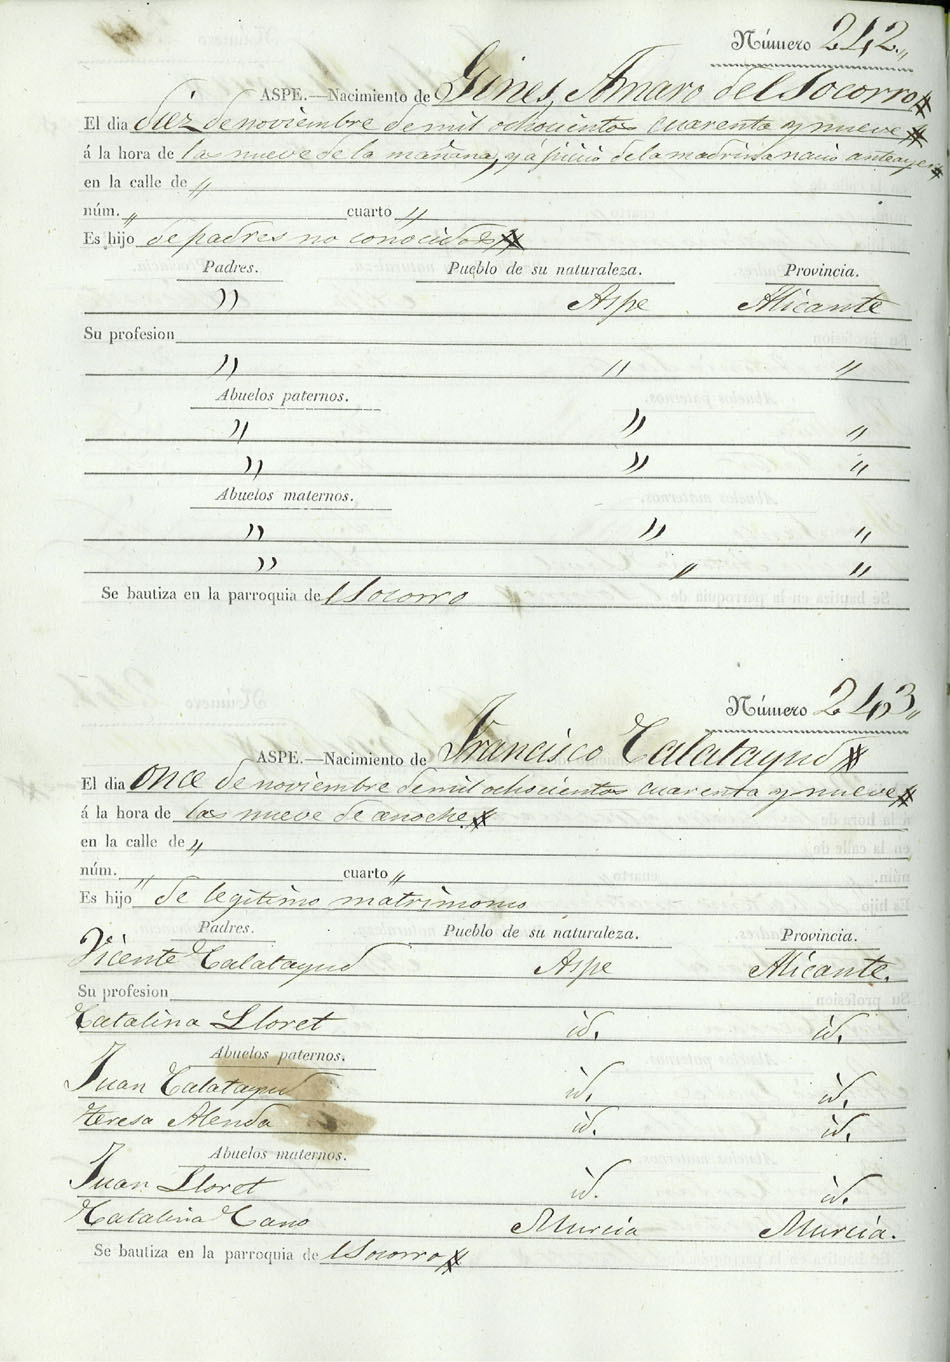 Número 242.,,
ASPE.—Nacimiento de Gines, Amaro del Socorro
El dia diez de noviembre de mil ochocientos cuarenta y nueve
á la hora de las nueve de la mañana, y á juicio de la madrina nació anteayer
en la calle de "
núm. " cuarto "
Es hijo de padres no conocidos
Padres. Pueblo de su naturaleza. Provincia.
" Aspe Alicante
Su profesion
" " "
Abuelos paternos.
" " "
" " "
Abuelos maternos.
" " "
" " "
Se bautiza en la parroquia de l Socorro
Número 243,,
ASPE.—Nacimiento de Francisco Calatayud
El dia once de noviembre de mil ochocientos cuarenta y nueve
á la hora de las nueve de anoche
en la calle de "
núm. " cuarto "
Es hijo de legitimo matrimonio
Padres. Pueblo de su naturaleza. Provincia.
Vicente Calatayud Aspe Alicante.
Su profesion
Catalina Lloret id. id.
Abuelos paternos.
Juan Calatayud id. id.
Teresa Alenda id. id.
Abuelos maternos.
Juan Lloret id. id.
Catalina Cano Murcia Murcia.
Se bautiza en la parroquia de l Socorro